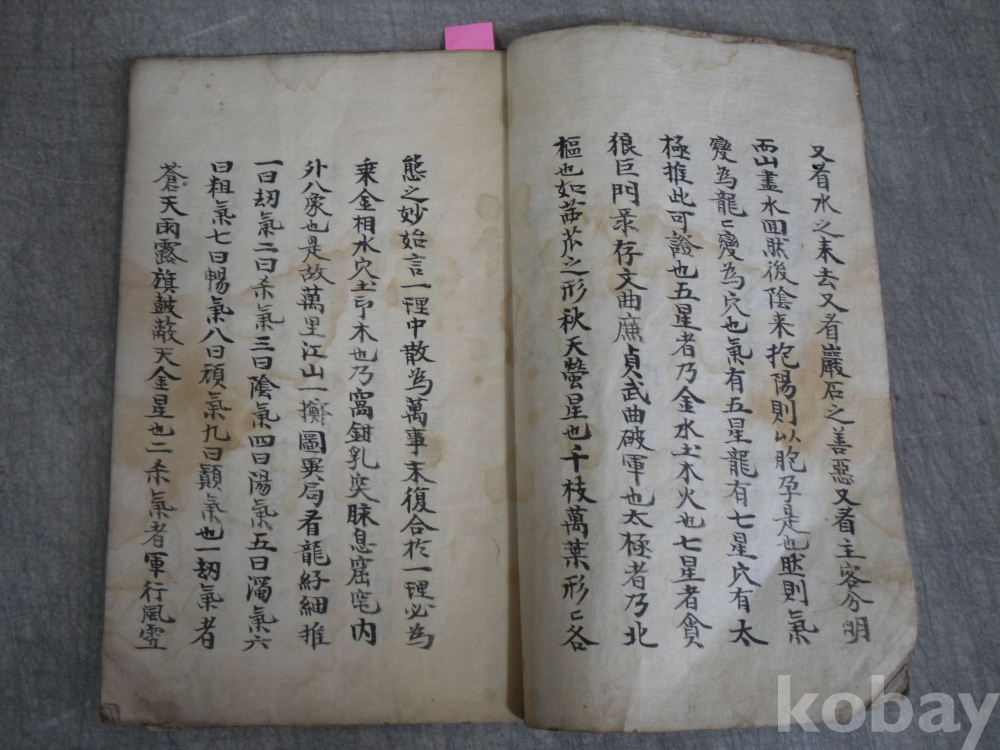 又看水之来去又看巖石之善惡又看主客分明
而山盡水回然後陰来抱陽則以胞孕是也然則氣
變為龍〻變為穴也氣有五星龍有七星穴有太
極推此可證也五星者乃金水土木火也七星者貪
狼巨門彔存文曲廉貞武曲破軍也太極者乃北
樞也如茁芽之形秋天螢星也千枝萬葉形〻各
態之妙始言一理中散為萬事末復合於一理必為
乗金相水穴土印木也乃窩鉗乳突脉息窟窀内
外八象也是故萬里江山一擲圖異局看龍仔細推
一曰刼氣二曰杀氣三曰陰氣四曰陽氣五曰濁氣六
曰粗氣七曰暢氣八曰頑氣九曰顛氣也一刼氣者
蒼天雨露旗鼓敵天金星也二杀氣者軍行風雲
kobay